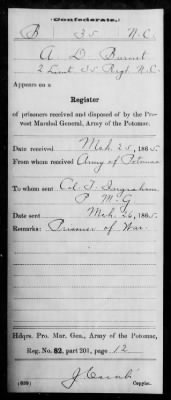 Confederate.
B 35 N.C.
A. D. Burnet
2 Lieut 35 Regt. N.C.
Appears on a
Register
of prisoners received and disposed of by the Provost Marshal General, Army of the Potomac.
Date received Mch 25, 1865.
From whom received Army of Potomac
To whom sent Col. T. Ingraham
P. M. G
Date sent Mch. 26, 1865.
Remarks: Prisoner of War.
Hdqrs. Pro. Mar. Gen., Army of the Potomac,
Reg. No. 82, part 201, page 12
Copyist.